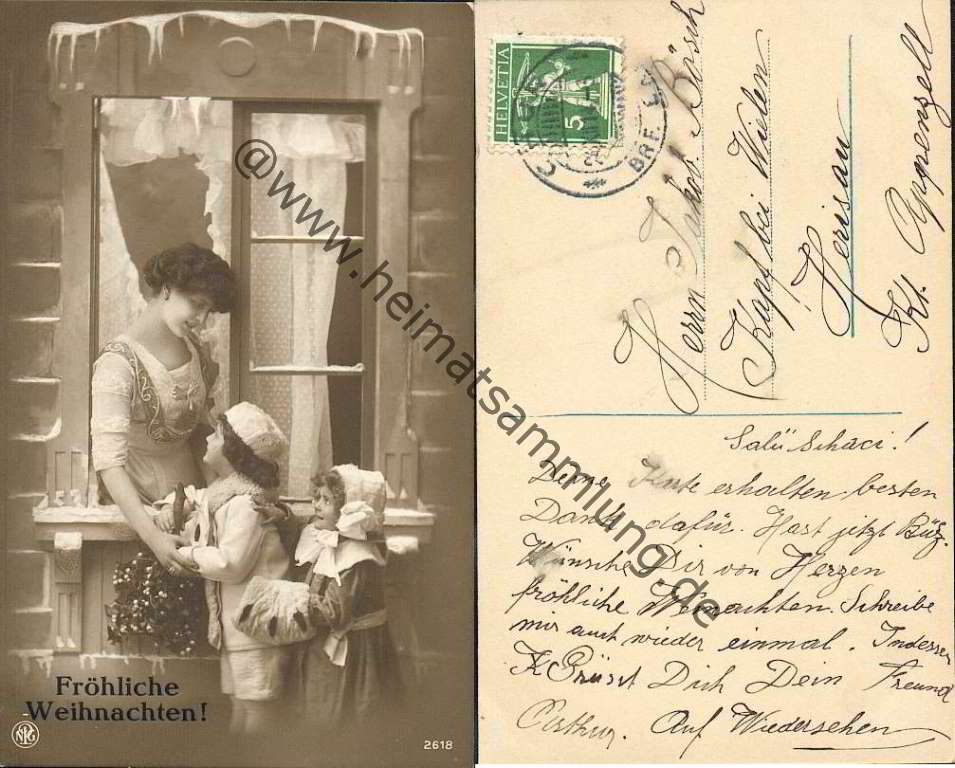 Fröhliche
Weihnachten!
NPG
2618
@www.heimatsammlung.de
HELVETIA
5
Herrn Jakob Bösch
Kapf bei Wielen
Herisau
Kt. Appenzell
Salü Schaci!
Deine Karte erhalten besten
Dank dafür. Hast jetzt
Wünsche Dir von Herzen
fröhliche Weinachten. Schreibe
mir auch wieder einmal. Indessen
Grüsst Dich Dein Freund
Arthur. Auf Wiedersehen